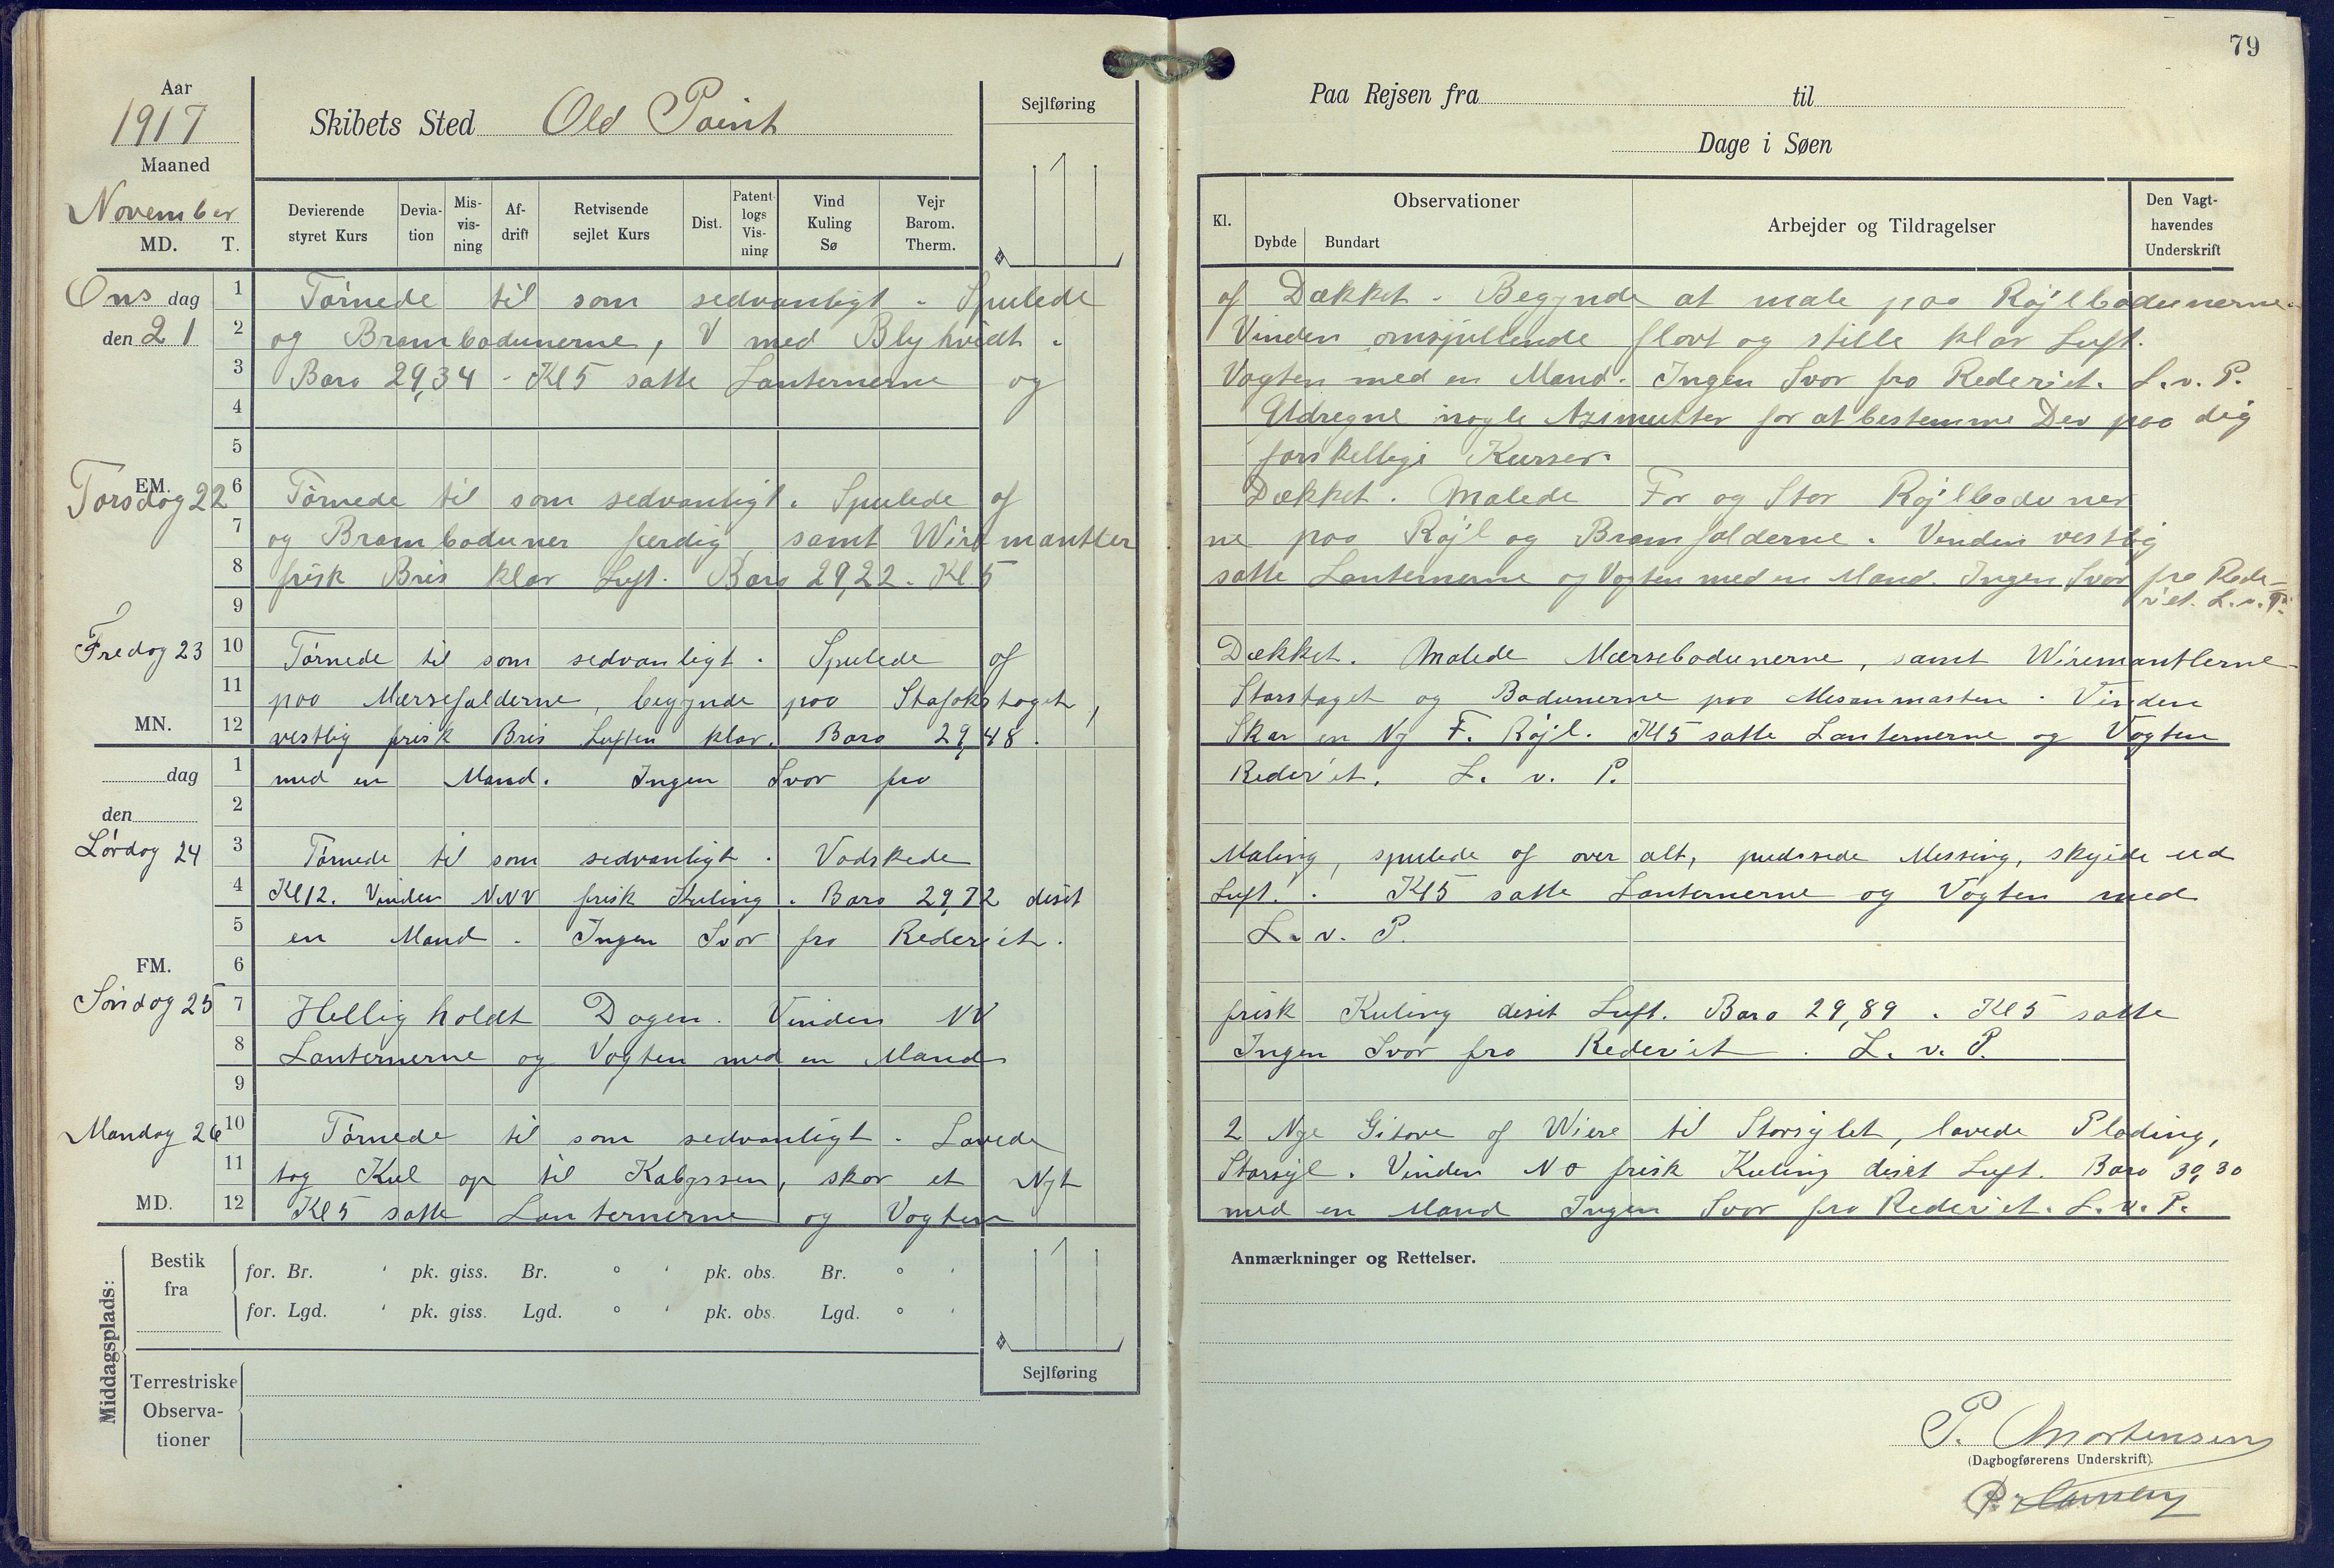 79
Aar
1917
Maaned
November
MD. T.
Skibets Sted Old Point
Sejlføring
Paa Rejsen fra til
Dage i Søen
Devierende styret Kurs
Deviation
Misvisning
Afdrift
Retvisende sejlet Kurs
Dist.
Patentlogs Visning
Vind Kuling Sø
Vejr Barom. Therm.
Kl.
Observationer
Dybde Bundart
Arbejder og Tildragelser
Den Vagthavendes Underskrift
Onsdag den 21
1 Törnede til som sedvanligt. Spulede af Dækket. Begynde at male paa Röjlbadunerne
2 og Brambadunerne, V med Blyhvidt. Vinden omsjillende flovt og stille klar Luft.
3 Baro 29,34 - Kl 5 satte Lanternerne og Vagten med en Mand. Ingen Svar fra Rederiet. L. v. P.
4 Udregne nogle Azimutter for at bestemme Dev paa dig
5 forskellige Kurser.
EM.
Torsdag 22
6 Törnede til som sedvanligt. Spulede af Dækket. Malede For og Stor Röjlbaduner
7 og Brambaduner færdig, samt Wiremantlerne paa Röjl og Bramfalderne. Vinden vestlig
8 frisk Bris klar Luft. Baro 29,22. Kl. 5 satte Lanternerne og Vagten med en Mand. Ingen Svar fra Rederiet. L. v. P.
9
Fredag 23
10 Törnede til som sedvanligt. Spulede af Dækket. Malede Mærsebadunerne, samt Wiremantlerne
11 paa Mærsefalderne, begynde paa Stafokstaget, Storstaget og Badunerne paa Mesanmasten. Vinden
MN.
12 vestlig frisk Bris Luften klar. Baro 29,48. Skar en Ny F. Röjl. Kl 5 satte Lanternerne og Vagten
dag
1 med en Mand. Ingen Svar fra Rederiet. L. v. P.
2
den
Lördag 24
3 Törnede til som sedvanligt. Vadskede Maling, spulede af over alt, pudssede Messing, skyide ud
4 Kl 12. Vinden NNV frisk Kuling. Baro 29,72 diset Luft. Kl 5 satte Lanternerne og Vagten med
5 en Mand. Ingen Svar fra Rederiet. L. v. P.
FM.
6
Söndag 25
7 Helligholdt Dagen. Vinden NV frisk Kuling diset Luft. Baro 29,89. Kl 5 satte
8 Lanternerne og Vagten med en Mand Ingen Svar fra Rederiet. L. v. P.
9
Mandag 26
10 Törnede til som sedvanligt. Lavede 2 Nye Gitove af Wiere til Storsejlet, lavede Plading,
11 tog Kul op til Kabyssen, skar et Nyt Storsejl. Vinden NO frisk Kuling diset Luft. Baro 30,30
MD.
12 Kl 5 satte Lanternerne og Vagten med en Mand Ingen Svar fra Rederiet. L. v. P.
Middagsplads:
Bestik fra
for. Br. ' pk. giss. Br. ° ' pk. obs. Br. ° '
for. Lgd. ' pk. giss. Lgd. ° ' pk. obs. Lgd. ° '
Sejlføring
Terrestriske Observationer
Anmærkninger og Rettelser.
P. Mortensen
(Dagbogførerens Underskrift).